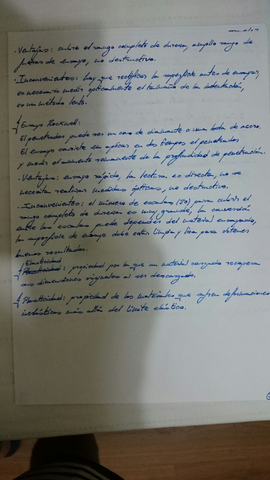 - Ventajas: cubre el rango completo de dureza, amplio rango de
fuerzas de ensayo, no destructivo.
- Inconvenientes: hay que rectificar la superficie antes de ensayar,
es necesario medir ópticamente el tamaño de la indentación,
es un método lento.
Ensayo Rockwell:
El penetrador puede ser un cono de diamante o una bola de acero.
El ensayo consiste en aplicar en dos tiempos el penetrador
y medir el aumento remanente de la profundidad de penetración.
- Ventajas: ensayo rápido, la lectura es directa, no se
necesitan realizar medidas ópticas, no destructivo.
- Inconvenientes: el número de escalas (30) para cubrir el
rango completo de durezas es muy grande, la conversión
entre las escalas puede depender del material ensayado,
la superficie de ensayo debe estar limpia y lisa para obtener
buenos resultados.
Elasticidad
: propiedad por la que un material cargado recupera
sus dimensiones originales al ser descargado.
Plasticidad: propiedad de los materiales que sufren deformaciones
inelásticas más allá del límite elástico.